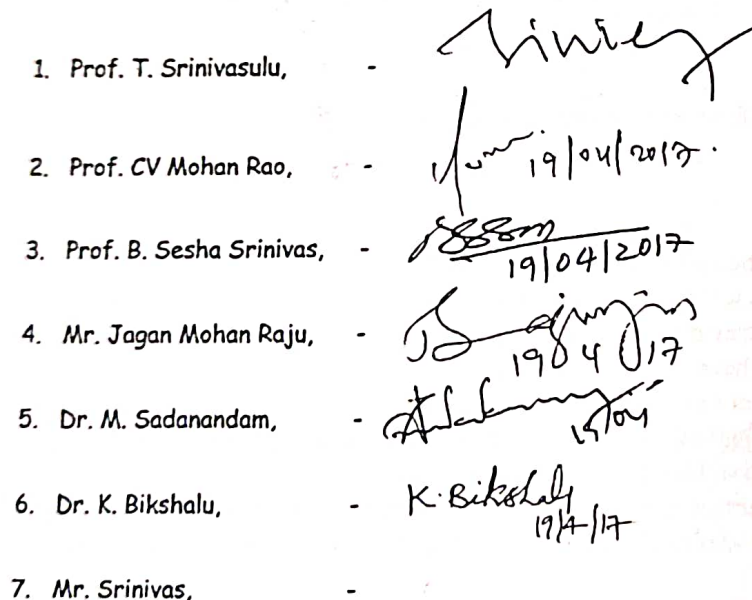 1. Prof. T. Srinivasulu, -
2. Prof. CV Mohan Rao, - 19/04/2017.
3. Prof. B. Sesha Srinivas, - 19/04/2017
4. Mr. Jagan Mohan Raju, - 19 4 17
5. Dr. M. Sadanandam, -
6. Dr. K. Bikshalu, - K. Bikshalu
19/4/17
7. Mr. Srinivas, -